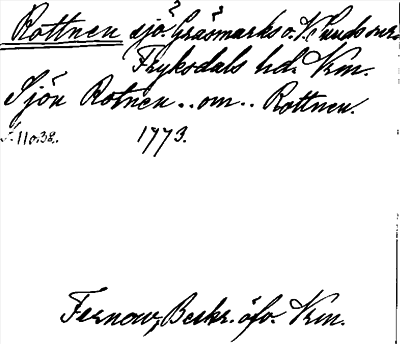 Rottnen sjö? Gräsmarks o. V. Sunds snr.
Fryksdals hd. Vrm.
Sjön Rotnen .. om .. Rottnen.
s. 11 o. 38. 1773.
Fernow, Beskr. öfv. Vrm.